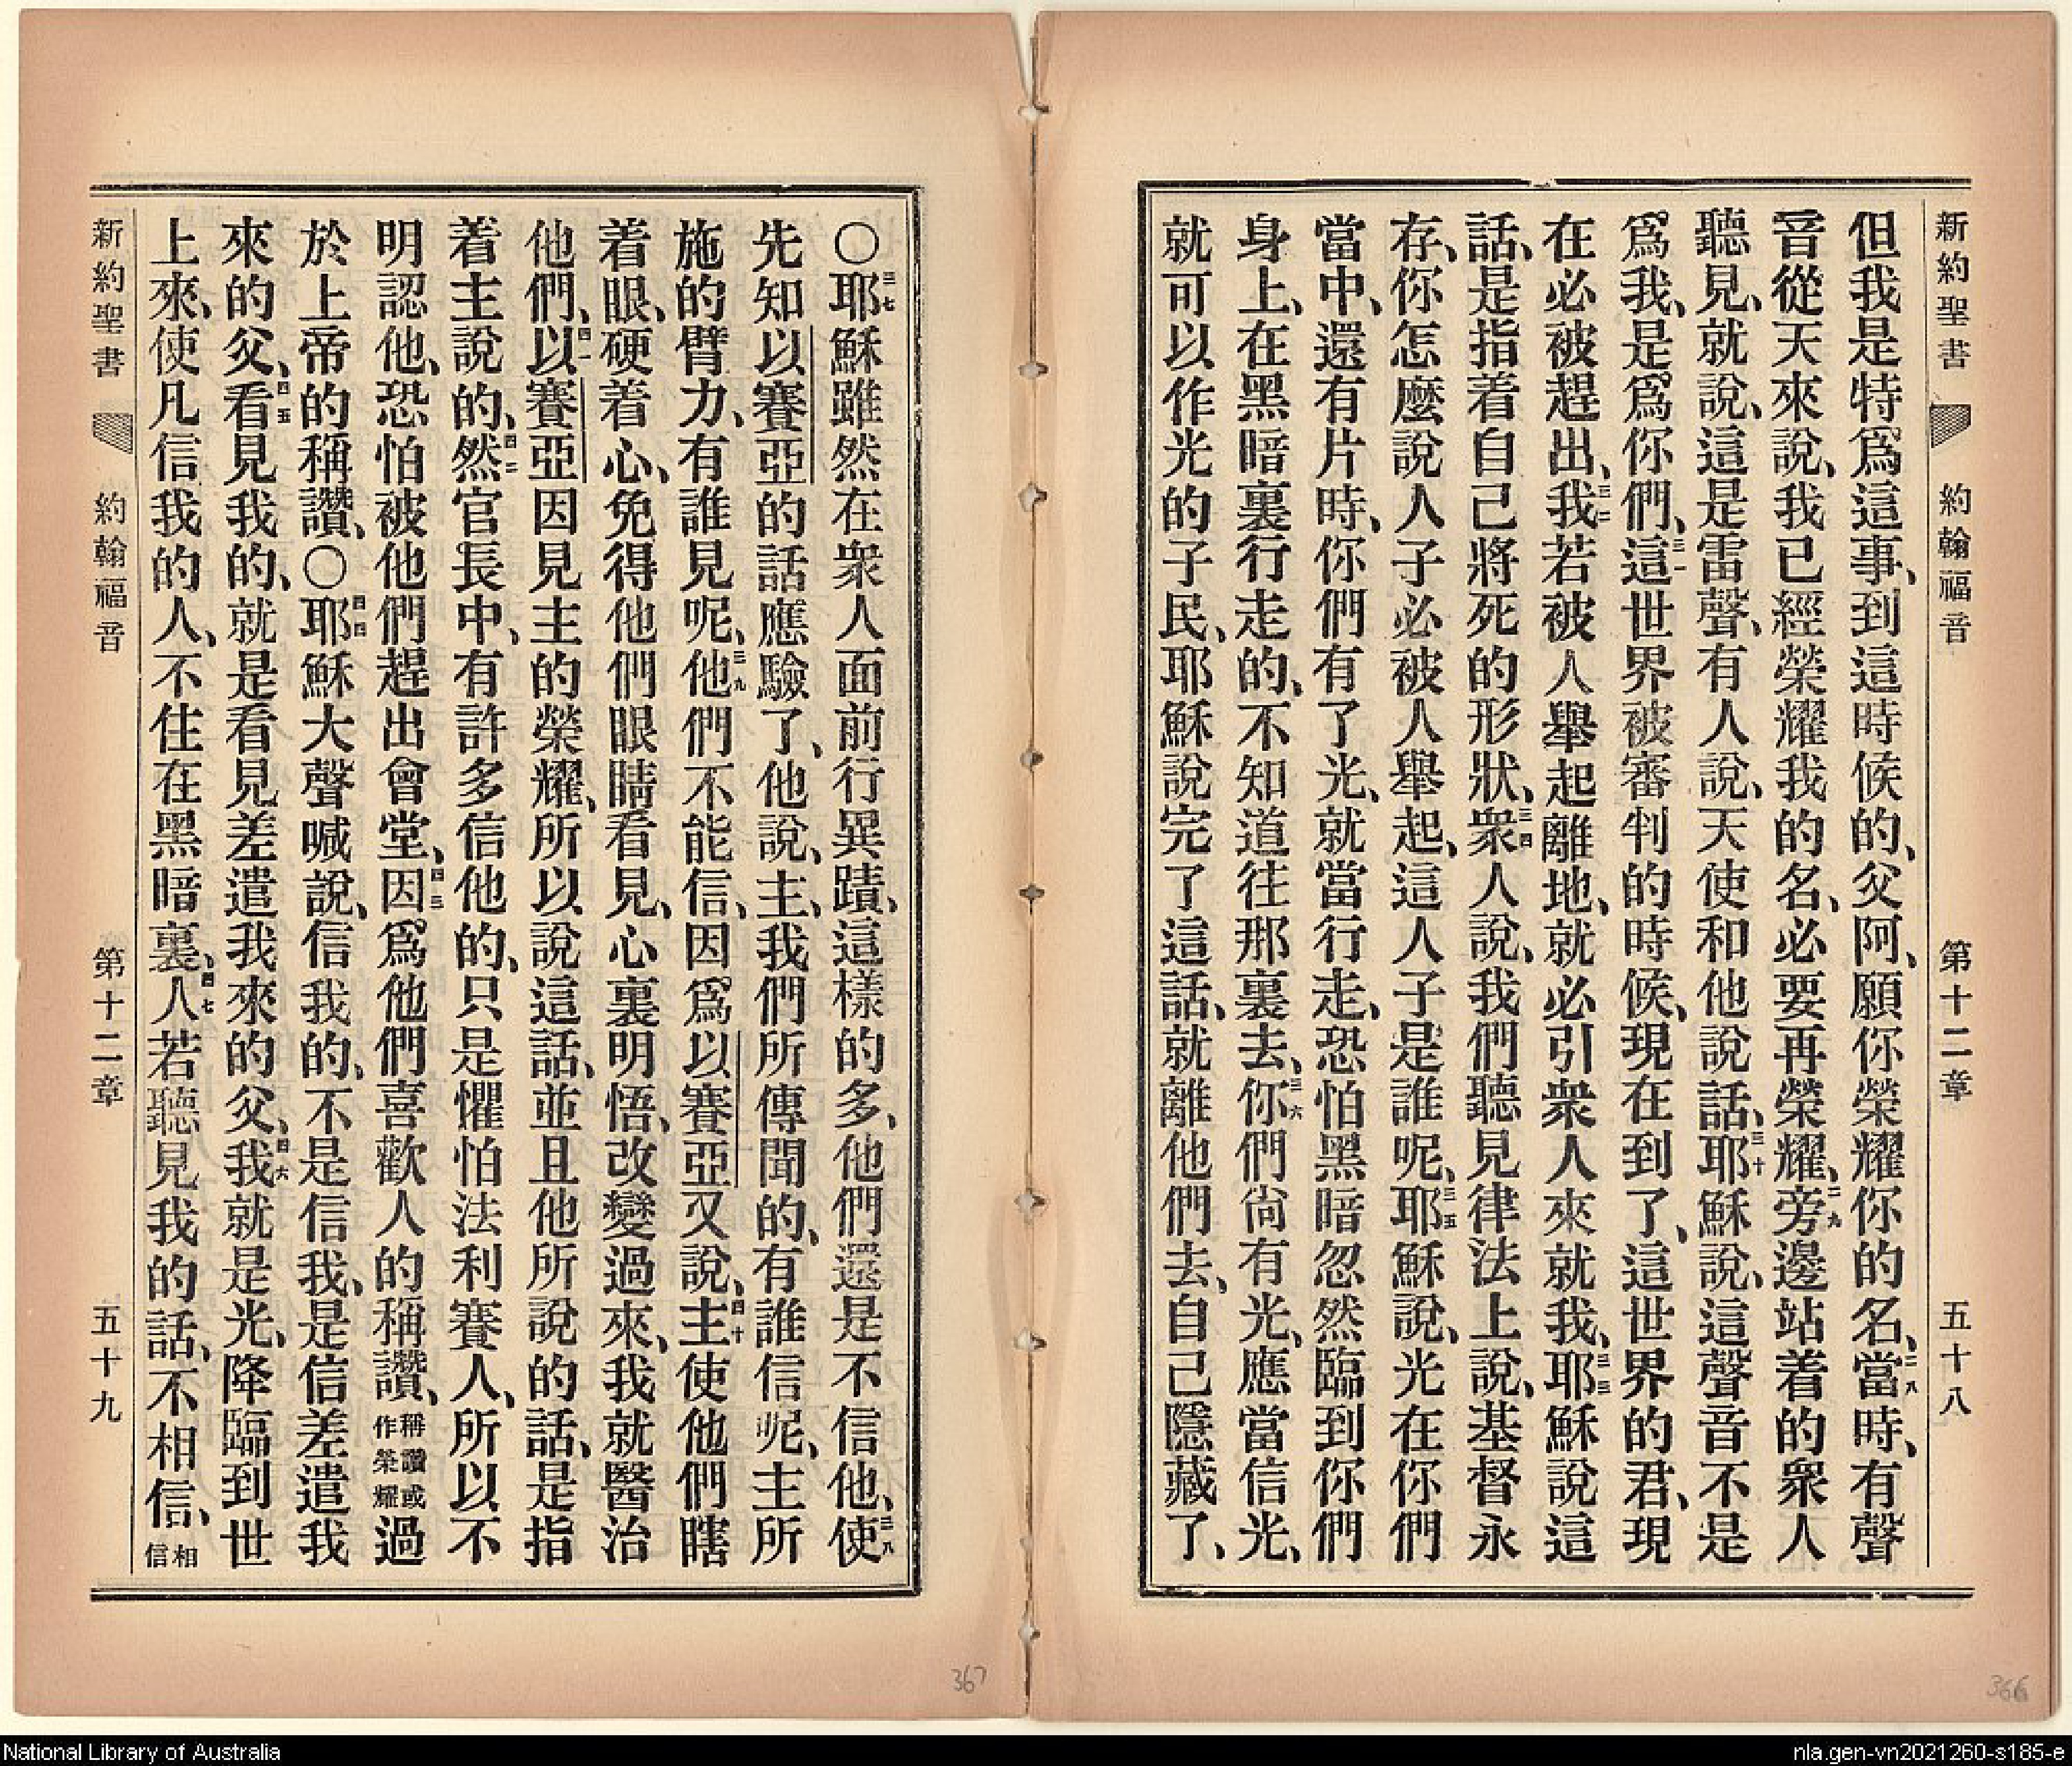 新約聖書 約翰福音 第十二章 五十八
但我是特爲這事、到這時候的、父阿、願你榮耀你的名、二八當時、有聲
音從天來說、我已經榮耀我的名、必要再榮耀、二九旁邊站着的衆人
聽見、就說、這是雷聲、有人說、天使和他說話、三十耶穌說、這聲音不是
爲我、是爲你們、三一這世界被審判的時候、現在到了、這世界的君、現
在必被趕出、三二我若被人舉起離地、就必引衆人來就我、三三耶穌說這
話、是指着自己將死的形狀、三四衆人說、我們聽見律法上說、基督永
存、你怎麼說人子必被人舉起、這人子是誰呢、三五耶穌說、光在你們
當中、還有片時、你們有了光、就當行走、恐怕黑暗忽然臨到你們
身上、在黑暗裏行走的、不知道往那裏去、三六你們尙有光、應當信光、
就可以作光的子民、耶穌說完了這話、就離他們去、自己隱藏了、
〇三七耶穌雖然在衆人面前行異蹟、這樣的多、他們還是不信他、三八使
先知以賽亞的話應驗了、他說、主、我們所傳聞的、有誰信呢、主所
施的臂力、有誰見呢、三九他們不能信、因爲以賽亞又說、四十主使他們瞎
着眼、硬着心、免得他們眼睛看見、心裏明悟、改變過來、我就醫治
他們、四一以賽亞因見主的榮耀、所以說這話、並且他所說的話、是指
着主說的、四二然官長中、有許多信他的、只是懼怕法利賽人、所以不
明認他、恐怕被他們趕出會堂、四三因爲他們喜歡人的稱讚、稱讚或作榮耀過
於上帝的稱讚、〇四四耶穌大聲喊說、信我的、不是信我、是信差遣我
來的父、四五看見我的、就是看見差遣我來的父、四六我就是光、降臨到世
上來、使凡信我的人、不住在黑暗裏、四七人若聽見我的話、不相信、相信
新約聖書 約翰福音 第十二章 五十九
367
366
National Library of Australia
nla.gen-vn2021260-s185-e